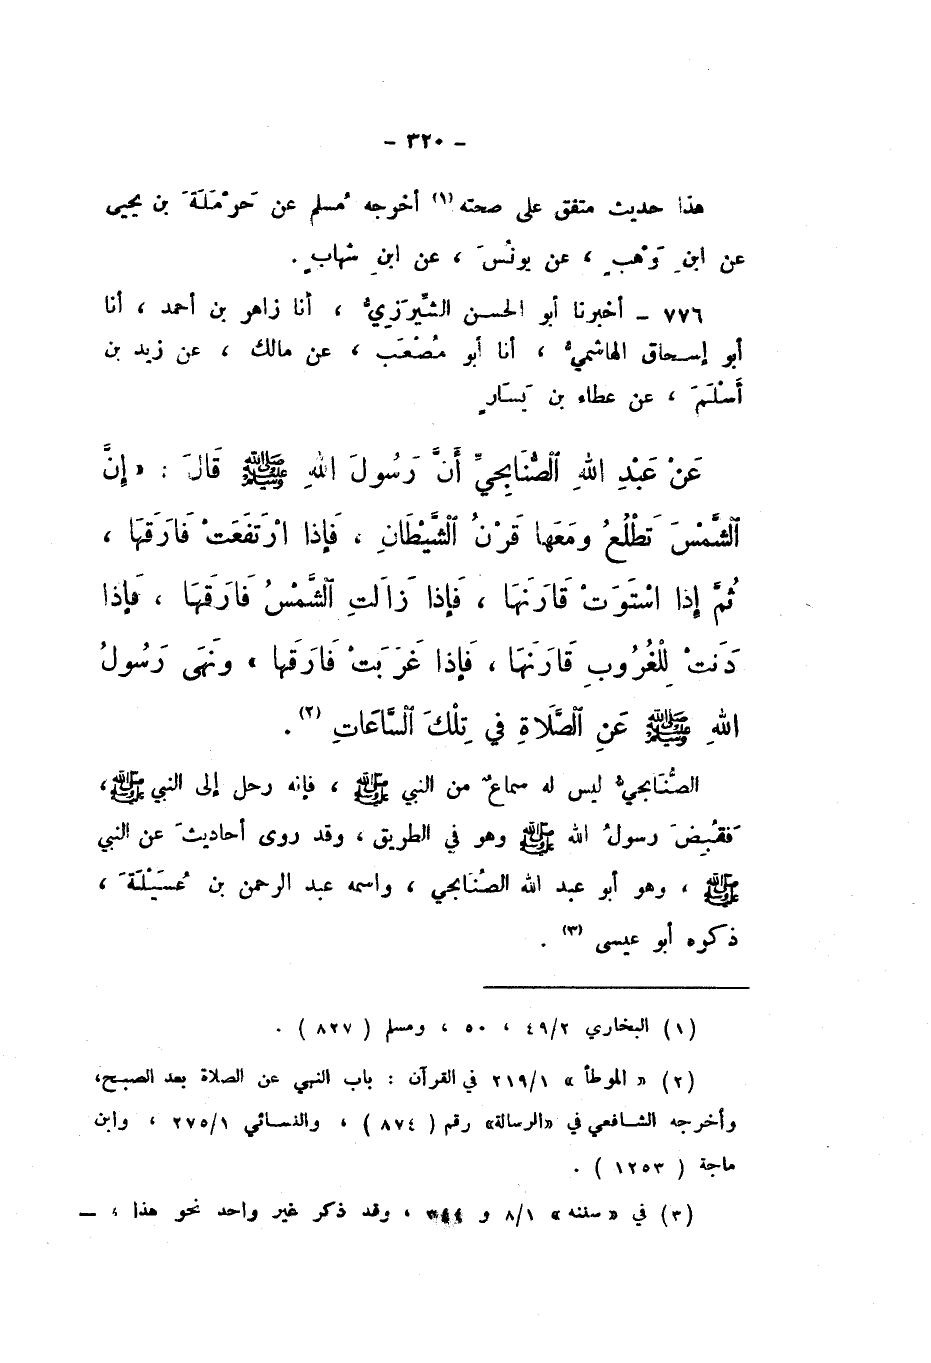 - ٣٢٠ -
هذا حديث متفق على صحته (١) أخرجه مُسلم عن حَرْمَلَةَ بن يحيى
عن ابنِ وَهْبٍ ، عن يونُسَ ، عن ابنِ شهابٍ .
٧٧٦ - أخبرنا أبو الحسن الشِّيرَزِيُّ ، أنا زاهر بن أحمد ، أنا
أبو إسحاق الهاشميُّ ، أنا أبو مُصْعَب ، عن مالك ، عن زيد بن
أَسْلَمَ ، عن عطاء بن يَسَارٍ
عَنْ عَبْدِ اللهِ الصُّنَابِحِيِّ أَنَّ رَسُولَ اللهِ ﷺ قَالَ : « إِنَّ
الشَّمْسَ تَطْلُعُ وَمَعَها قَرْنُ الشَّيْطَانِ ، فَإِذا ارْتَفَعَتْ فَارَقَهَا ،
ثُمَّ إِذا اسْتَوَتْ قَارَنَهَا ، فَإِذا زَالَتِ الشَّمْسُ فَارَقَهَا ، فَإِذا
دَنَتْ لِلْغُرُوبِ قَارَنَهَا ، فَإِذا غَرَبَتْ فَارَقَها » وَنَهَى رَسُولُ
اللهِ ﷺ عَنِ الصَّلَاةِ فِي تِلْكَ السَّاعَاتِ (٢) .
الصُّنَابحيُّ ليس له سماعٌ من النبي ﷺ ، فإنه رحل إلى النبي ﷺ ،
فَقُبِضَ رسولُ الله ﷺ وهو في الطريق ، وقد روى أحاديثَ عن النبي
ﷺ ، وهو أبو عبد الله الصُنَابحي ، واسمه عبد الرحمن بن عُسَيْلَةَ ،
ذكره أبو عيسى (٣) .
(١) البخاري ٤٩/٢ ، ٥٠ ، ومسلم ( ٨٢٧ ) .
(٢) « الموطأ » ٢١٩/١ في القرآن : باب النهي عن الصلاة بعد الصبح،
وأخرجه الشافعي في «الرسالة» رقم ( ٨٧٤ ) ، والنسائي ٢٧٥/١ ، وابن
ماجة ( ١٢٥٣ ) .
(٣) في « سننه » ٨/١ و ، وقد ذكر غير واحد نحو هذا ، —